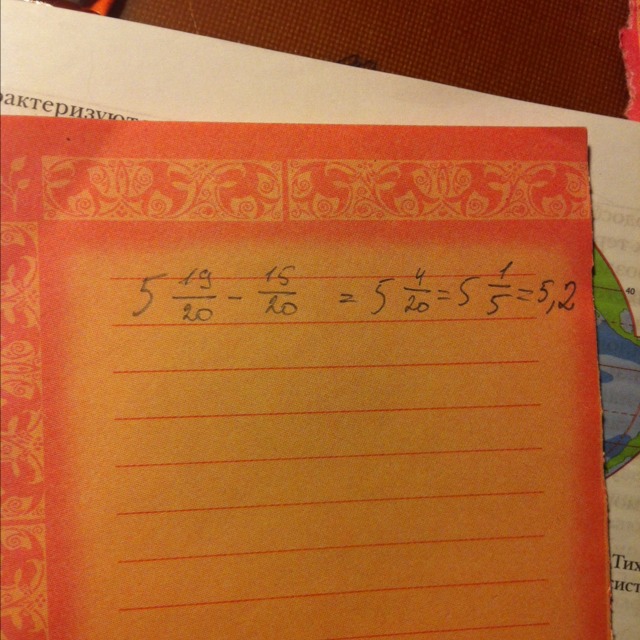 рактеризуют
5 19/20 - 15/20 = 5 4/20 = 5 1/5 = 5,2
40
Тих
ист